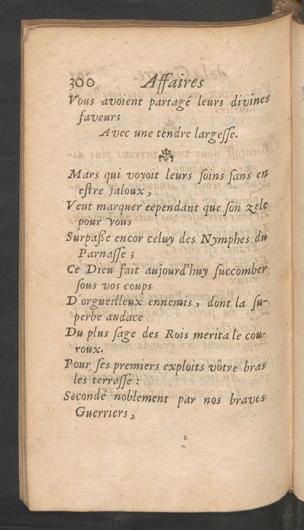 300 Affaires
Vous avoient partagé leurs divines
faveurs
Avec une tendre largesse.
Mars qui voyoit leurs soins sans en
estre jaloux,
Veut marquer cependant que son zele
pour vous
Surpasse encor celuy des Nymphes du
Parnasse ;
Ce Dieu fait aujourd'huy succomber
sous vos coups
D'orgueilleux ennemis, dont la su-
perbe audace
Du plus sage des Rois merita le cou-
roux.
Pour ses premiers exploits vôtre bras
les terrasse :
Secondé noblement par nos braves
Guerriers,